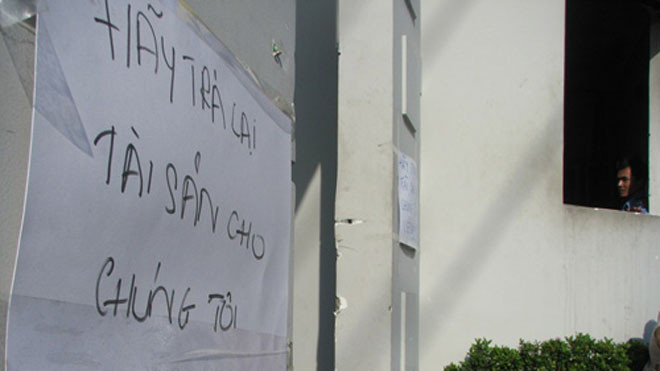 HÃY TRẢ LẠI
TÀI SẢN CHO
CHÚNG TÔI